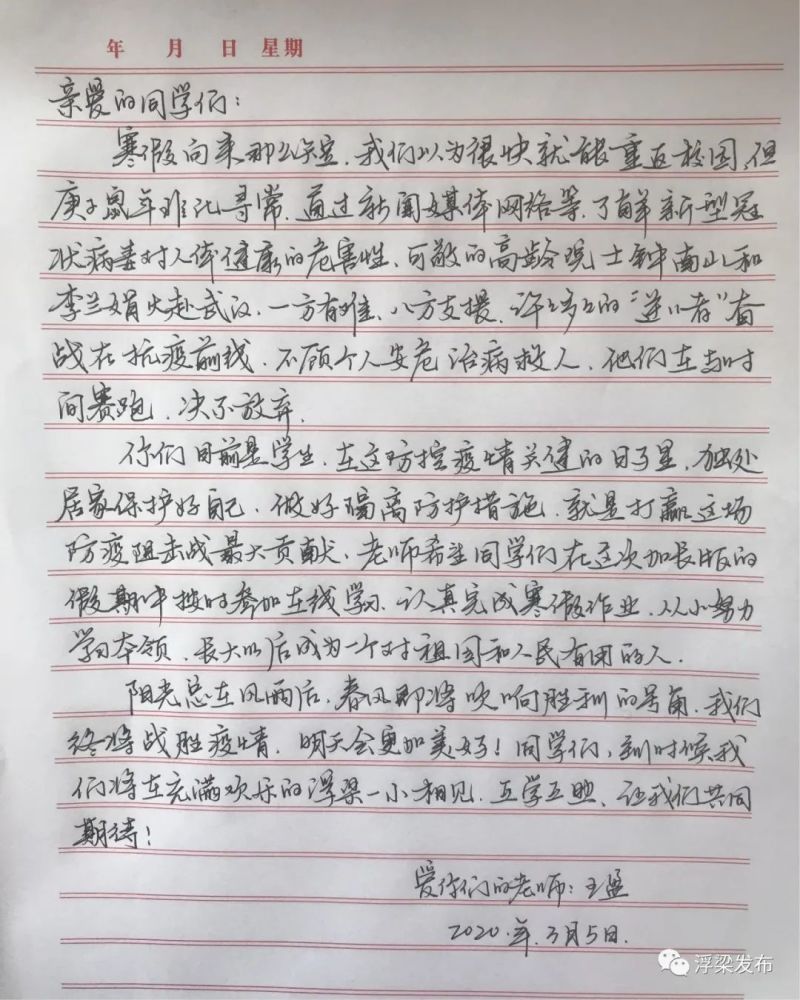 年 月 日 星期
亲爱的同学们：
寒假向来那么短暂，我们以为很快就能重返校园，但
庚子鼠年非比寻常，通过新闻媒体网络等，了解新型冠
状病毒对人体健康的危害性，可敬的高龄院士钟南山和
李兰娟火赴武汉，一方有难，八方支援，许许多多的“逆行者”奋
战在抗疫前线，不顾个人安危治病救人，他们在与时
间赛跑，决不放弃．
你们目前是学生，在这防控疫情关健的日子里，独处
居家保护好自己，做好隔离防护措施，就是打赢这场
防疫阻击战最大贡献，老师希望同学们在这次加长版的
假期中按时参加在线学习，认真完成寒假作业，从小努力
学习本领，长大以后成为一个对祖国和人民有用的人．
阳光总在风雨后，春风即将吹响胜利的号角，我们
终将战胜疫情，明天会更加美好！同学们，到时候我
们将在充满欢乐的浮梁一小相见，互学互照，让我们共同
期待！
爱你们的老师：王
2020.年.3月5日.
浮梁发布